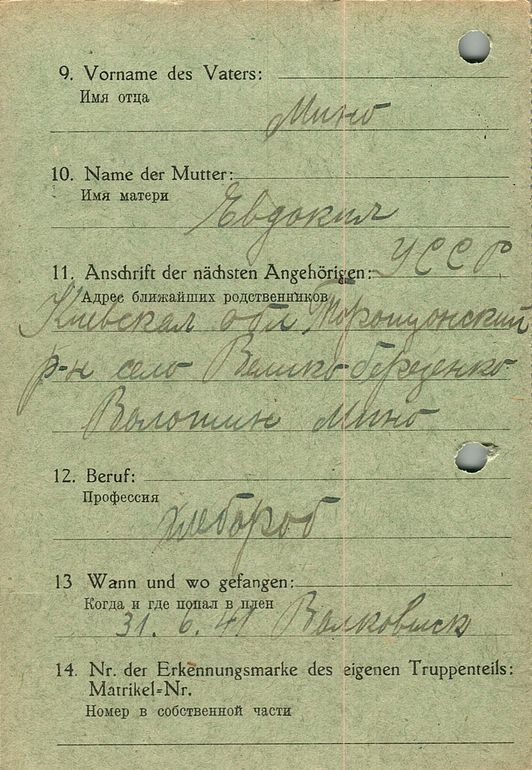 9. Vorname des Vaters:
Имя отца
Мино
10. Name der Mutter:
Имя матери
Евдокия
11. Anschrift der nächsten Angehörigen: УССР
Адрес ближайших родственников
Киевская обл.
р-н село Велико березенко
Волошин Мино
12. Beruf:
Профессия
хлебороб
13 Wann und wo gefangen:
Когда и где попал в плен
31. 6. 41 Волковыск
14. Nr. der Erkennungsmarke des eigenen Truppenteils:
Matrikel-Nr.
Номер в собственной части